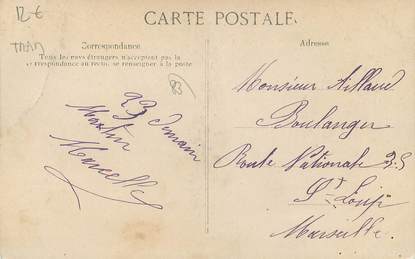 12 €
TRAM
CARTE POSTALE
Correspondance
Tous les pays étrangers n'acceptent pas la
correspondance au recto, se renseigner à la poste
83
Martin
Marcelle
Adresse
Monsieur Aillaud
Boulanger
Route Nationale 25
St Loup
Marseille